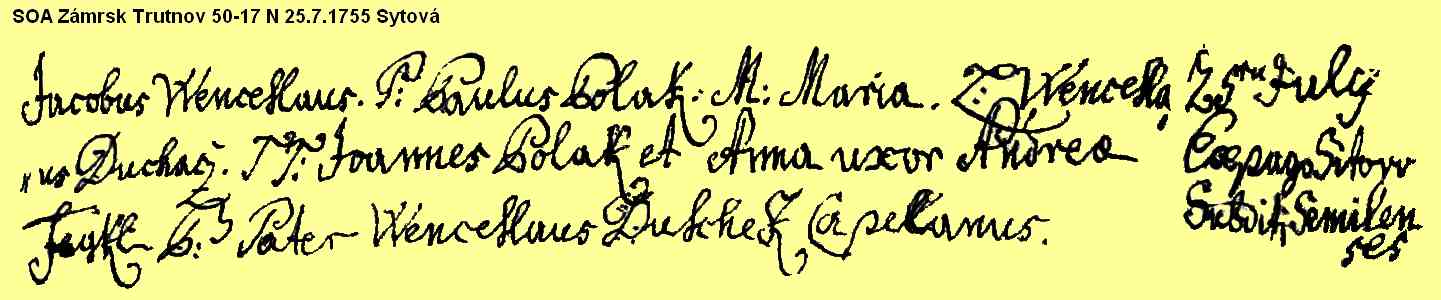 SOA Zámrsk Trutnov 50-17 N 25.7.1755 Sytová
Jacobus Wenceslaus. P: Paulus Polak. M: Maria. L: Wencesla 25 July
us Duchač. TT: Joannes Polak et Anna uxor Andreæ Ex pago Sitow
B: Pater Wenceslaus Duschek Capelanus. Subditi Semilen
ses